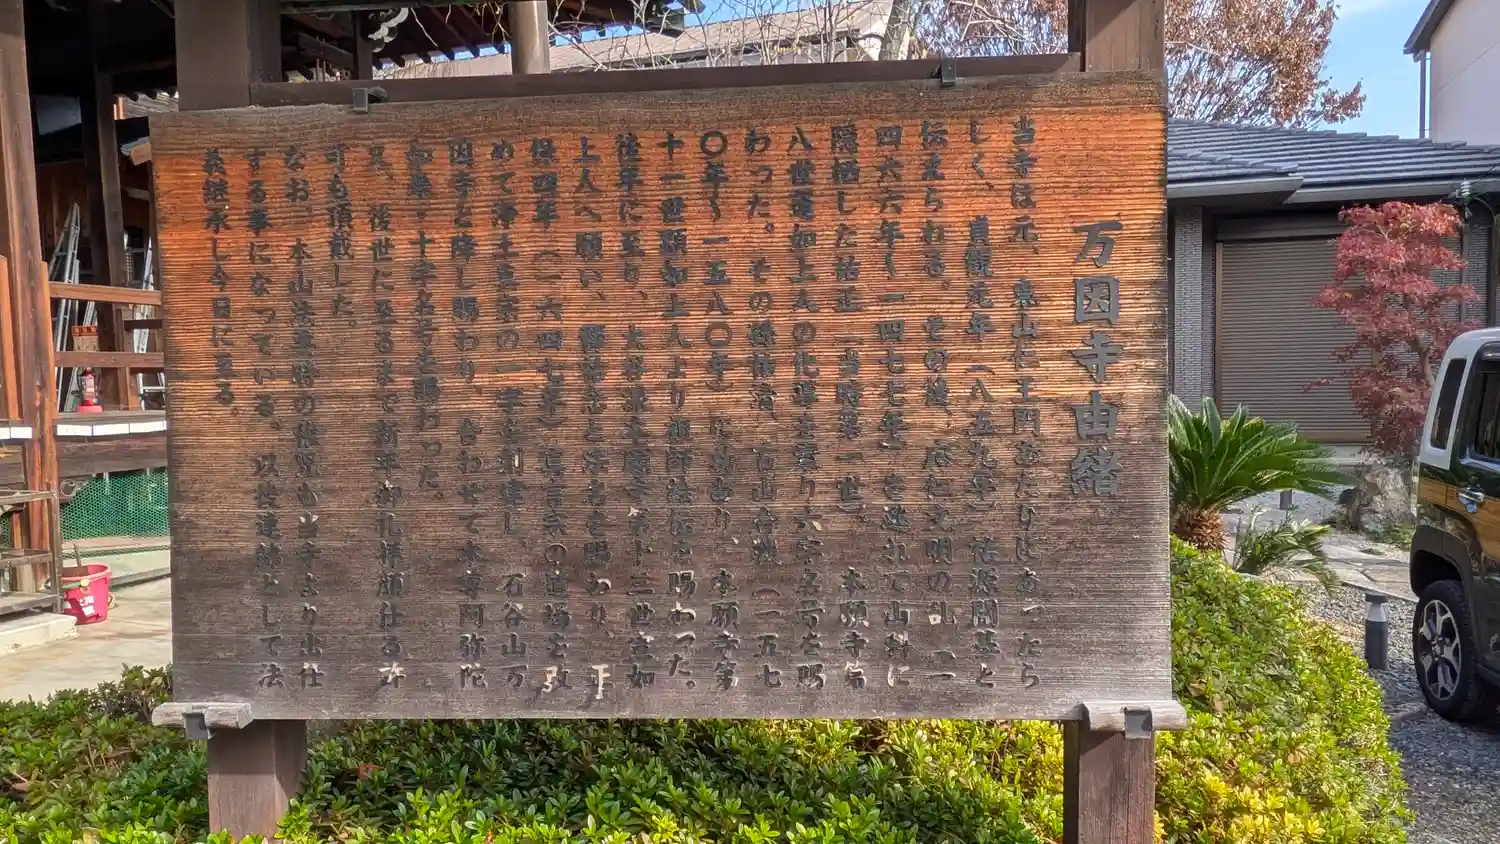 万因寺由緒
当寺は元、東山仁王門あたりにあったら
しく、貞観元年(八五九年)法源開基と
伝えられる。その後、応仁文明の乱(一
四六六年〜一四七七年)を逃れて山科に
隠栖した祐正(当時第一世)。本願寺第
八世蓮如上人の化導を蒙り六字名号を賜
わった。その孫祐 合戦(一五七
〇年〜一五八〇年)に 本願寺第
十一世顕如上人より祖師 賜わった。
後年に至り、 第十三世宣如
上人へ願い、 と を賜わり、正
保四年(一六四七年)真言宗の道場を改
めて浄土真宗の一宇を創建し、石谷山万
因寺と降し賜わり、合わせて本尊阿弥陀
如来・十字名号を賜わった。
又、後世に至るまで新年御礼拝顔仕る許
可も頂戴した。
なお、本山法要時の も当寺より出仕
する事になっている。以後連綿として法
義継承し今日に至る。